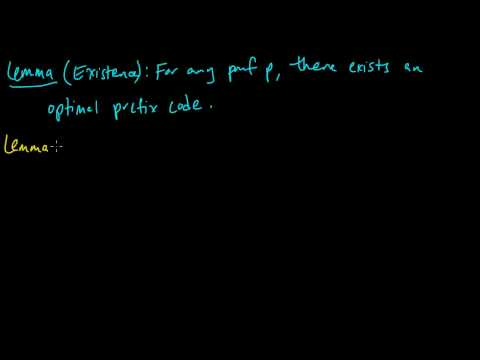 Lemma (Existence): For any pmf p, there exists an
optimal prefix code.
Lemma